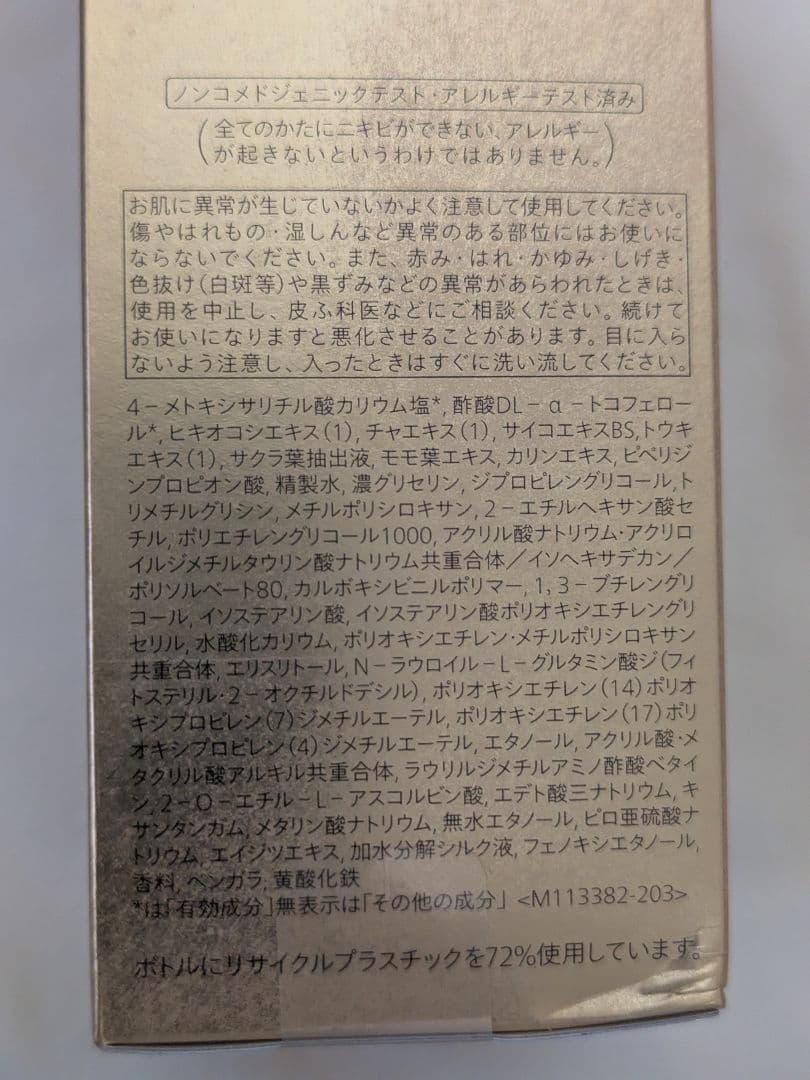 ノンコメドジェニックテスト・アレルギーテスト済み
(全てのかたにニキビができない、アレルギー
が起きないというわけではありません。)
お肌に異常が生じていないかよく注意して使用してください。
傷やはれもの・湿しんなど異常のある部位にはお使いに
ならないでください。また、赤み・はれ・かゆみ・しげき・
色抜け(白斑等)や黒ずみなどの異常があらわれたときは、
使用を中止し、皮ふ科医などにご相談ください。続けて
お使いになりますと悪化させることがあります。目に入ら
ないよう注意し、入ったときはすぐに洗い流してください。
4－メトキシサリチル酸カリウム塩*, 酢酸DL－α－トコフェロー
ル*, ヒキオコシエキス(1), チャエキス(1), サイコエキスBS,トウキ
エキス(1), サクラ葉抽出液, モモ葉エキス, カリンエキス, ピペリジ
ンプロピオン酸, 精製水, 濃グリセリン, ジプロピレングリコール,ト
リメチルグリシン, メチルポリシロキサン, 2－エチルヘキサン酸セ
チル, ポリエチレングリコール1000, アクリル酸ナトリウム・アクリロ
イルジメチルタウリン酸ナトリウム共重合体／イソヘキサデカン／
ポリソルベート80, カルボキシビニルポリマー, 1, 3－ブチレングリ
コール, イソステアリン酸, イソステアリン酸ポリオキシエチレングリ
セリル, 水酸化カリウム, ポリオキシエチレン・メチルポリシロキサン
共重合体, エリスリトール, N－ラウロイル－L－グルタミン酸ジ(フィ
トステリル・2－オクチルドデシル), ポリオキシエチレン(14)ポリオ
キシプロピレン(7)ジメチルエーテル, ポリオキシエチレン(17)ポリ
オキシプロピレン(4)ジメチルエーテル, エタノール, アクリル酸・メ
タクリル酸アルキル共重合体, ラウリルジメチルアミノ酢酸ベタイ
ン, 2－O－エチル－L－アスコルビン酸, エデト酸三ナトリウム, キ
サンタンガム, メタリン酸ナトリウム, 無水エタノール, ピロ亜硫酸ナ
トリウム, エイジツエキス, 加水分解シルク液, フェノキシエタノール,
香料, ベンガラ, 黄酸化鉄
*は「有効成分」無表示は「その他の成分」 <M113382-203>
ボトルにリサイクルプラスチックを72%使用しています。